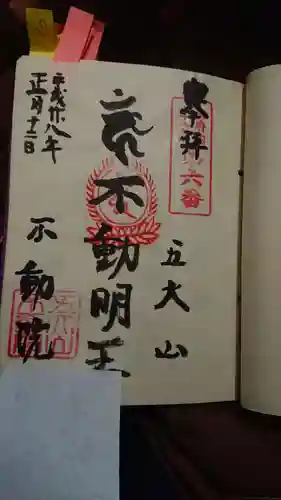 奉拝
六番
五大山
不動明王
不動院
平成廿八年
正月十二日